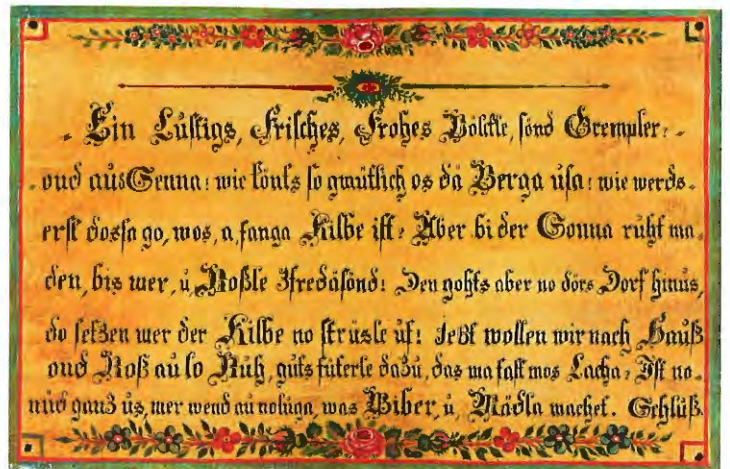 Ein Lüstigs, Frisches, Frohes Völckle, sönd Grempler:
ond aüs Senna: wie tönts so gmütlich os dä Berga üsa: wie werds
erst dossa go, wos, a, fanga Kilbe ist: Aber bi der Sonna rüht ma
den, bis wer, ü, Roßle Zfredä sönd: Den gohts aber no dörs Dorf hinüs,
do setzen wer der Kilbe no strüsle üf: Jetzt wollen wir nach Hauß
ond Roß aü lo Rüh, güts füterle dazü, das ma fast mos Lacha: Ist no
nüd ganz üs, mer wend aü no lüga, was Wiber, ü, Mädla machet. Schlüß.